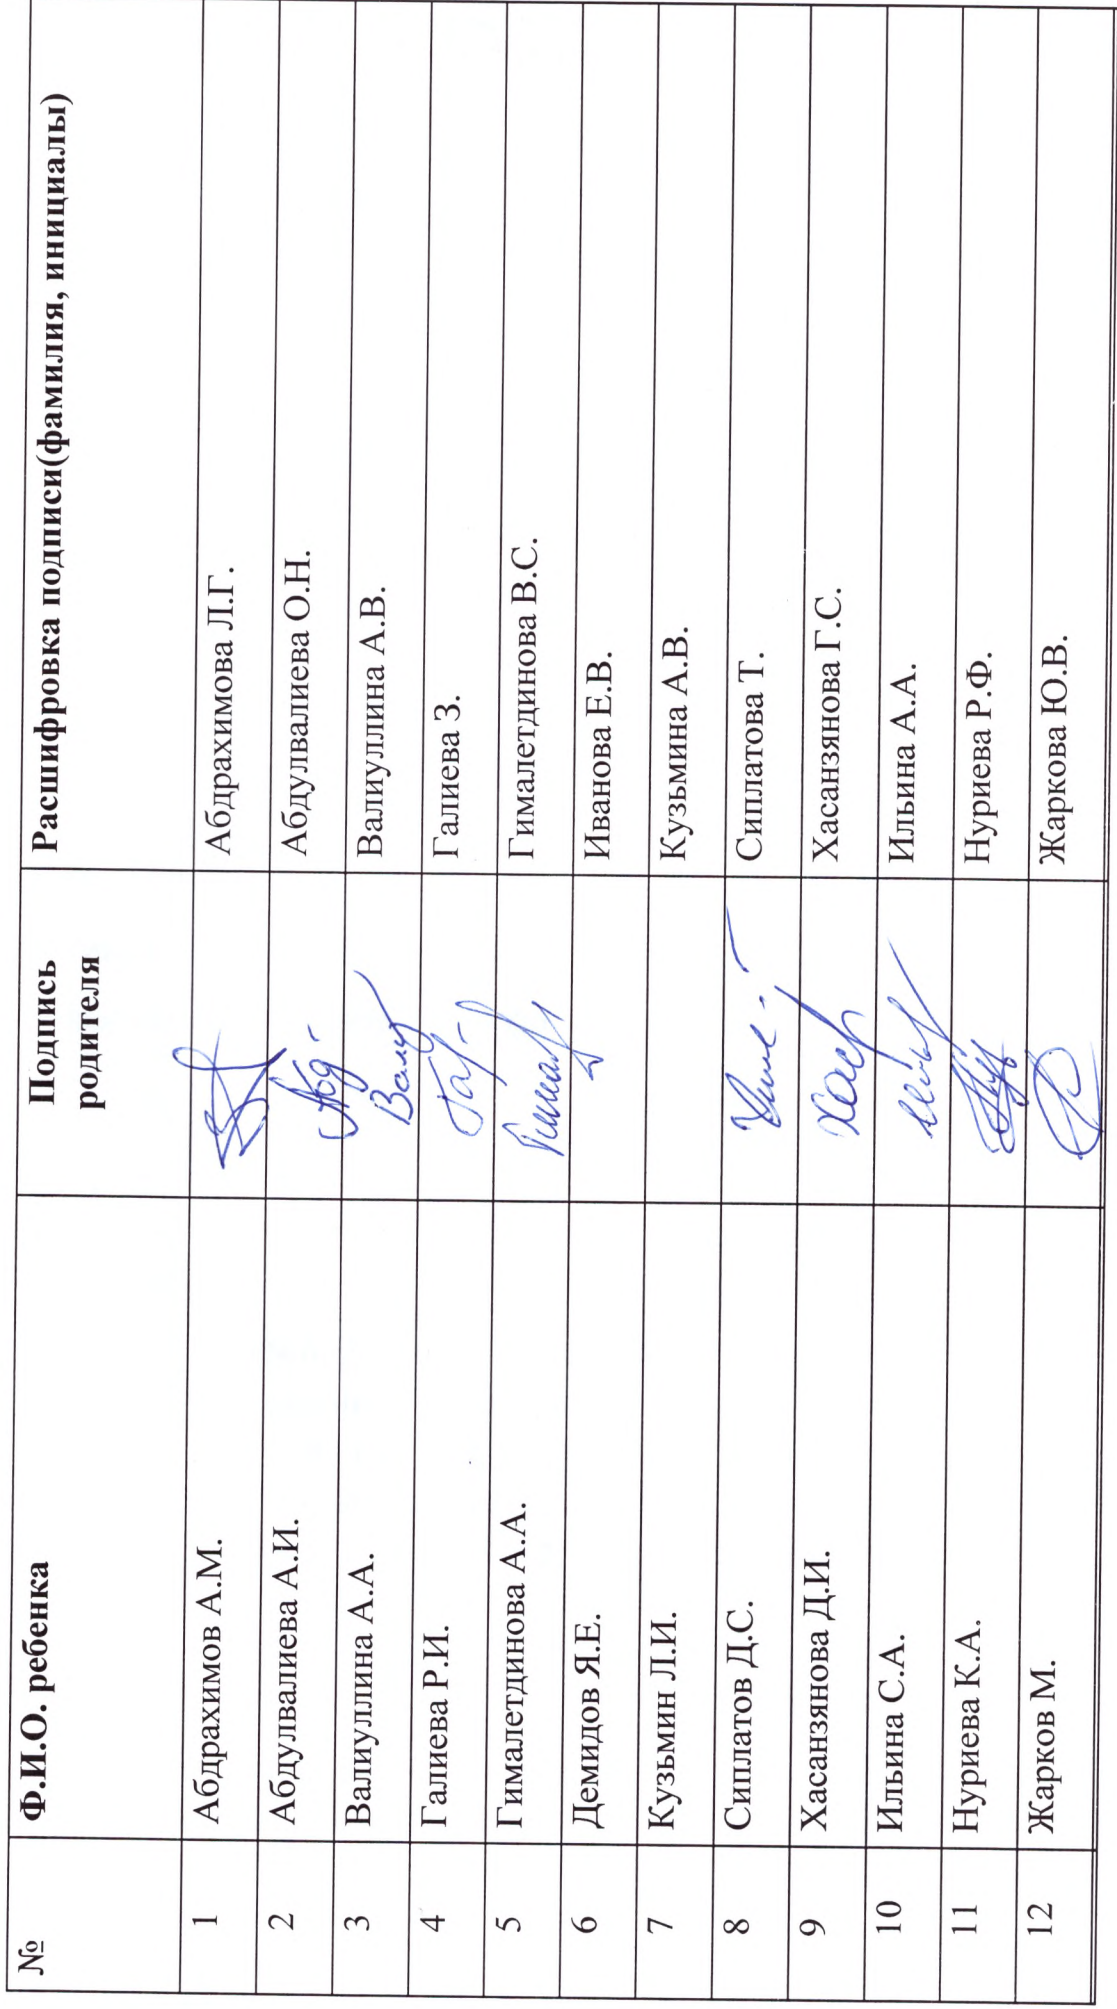 № Ф.И.О. ребенка Подпись родителя Расшифровка подписи(фамилия, инициалы)
1 Абдрахимов А.М. Абдрахимова Л.Г.
2 Абдулвалиева А.И. Абд Абдулвалиева О.Н.
3 Валиуллина А.А. Вал Валиуллина А.В.
4 Галиева Р.И. Гал Галиева З.
5 Гималетдинова А.А. Гималетдинова В.С.
6 Демидов Я.Е. Иванова Е.В.
7 Кузьмин Л.И. Кузьмина А.В.
8 Сиплатов Д.С. Сиплатова Т.
9 Хасанзянова Д.И. Хас Хасанзянова Г.С.
10 Ильина С.А. Ильина А.А.
11 Нуриева К.А. Нуриева Р.Ф.
12 Жарков М. Жаркова Ю.В.